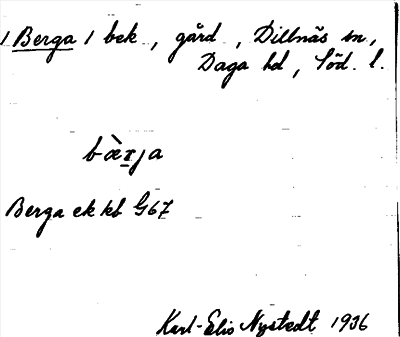 / Berga / bek, gård, Dillnäs sn,
Daga hd, Söd. l.
bæ̀rja
Berga ek kb G67
Karl-Eric Nystedt 1936